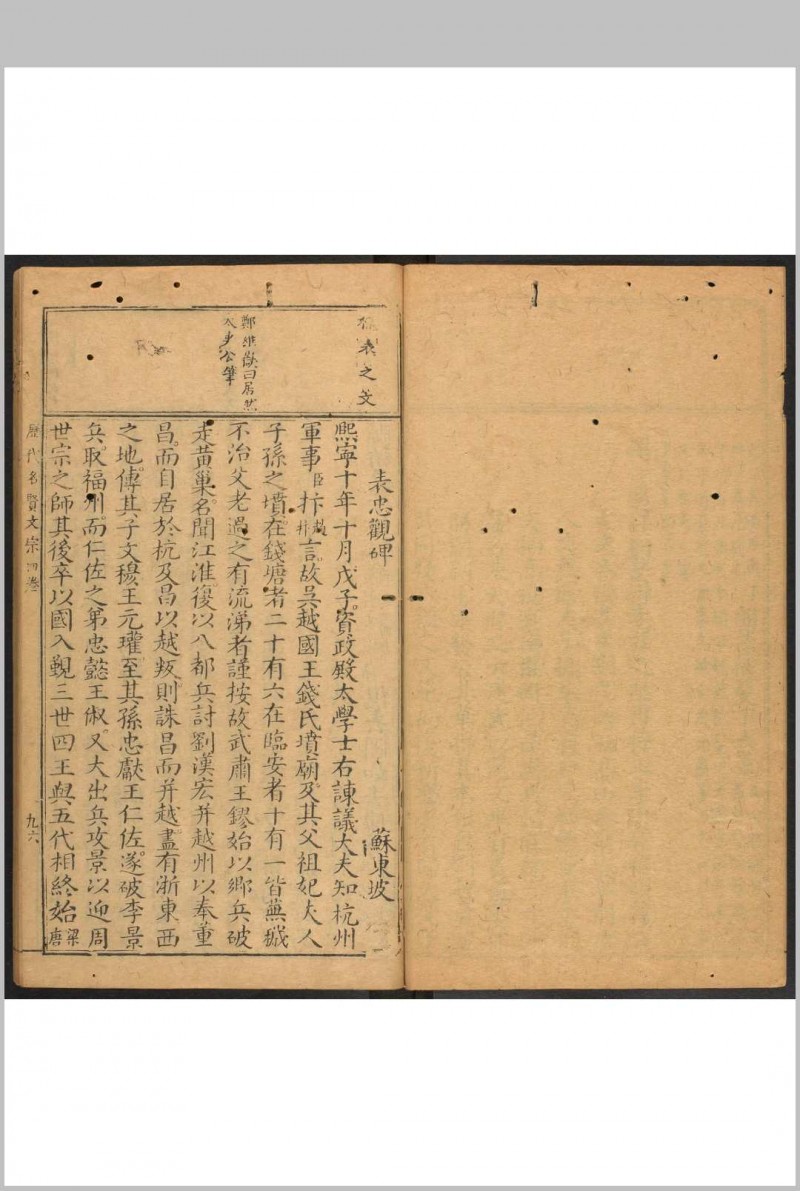 表忠觀碑 蘇東坡
熙寧十年十月戊子資政殿太學士右諫議大夫知杭州
軍事臣抃趙抃言故吳越國王錢氏墳廟及其父祖妃夫人
子孫之墳在錢塘者二十有六在臨安者十有一皆蕪穢
不治父老過之有流涕者謹按故武肅王鏐始以鄉兵破
走黃巢名聞江淮復以八都兵討劉漢宏并越州以奉董
昌而自居於杭及昌以越叛則誅昌而并越盡有浙東西
之地傳其子文穆王元瓘至其孫忠獻王仁佐遂破李景
兵取福州而仁佐之弟忠懿王俶又大出兵攻景以迎周
世宗之師其後卒以國入覲三世四王與五代相終始梁唐
表之文
鄭維嶽曰居然
太史公筆
歷代名賢文宗四卷
九六